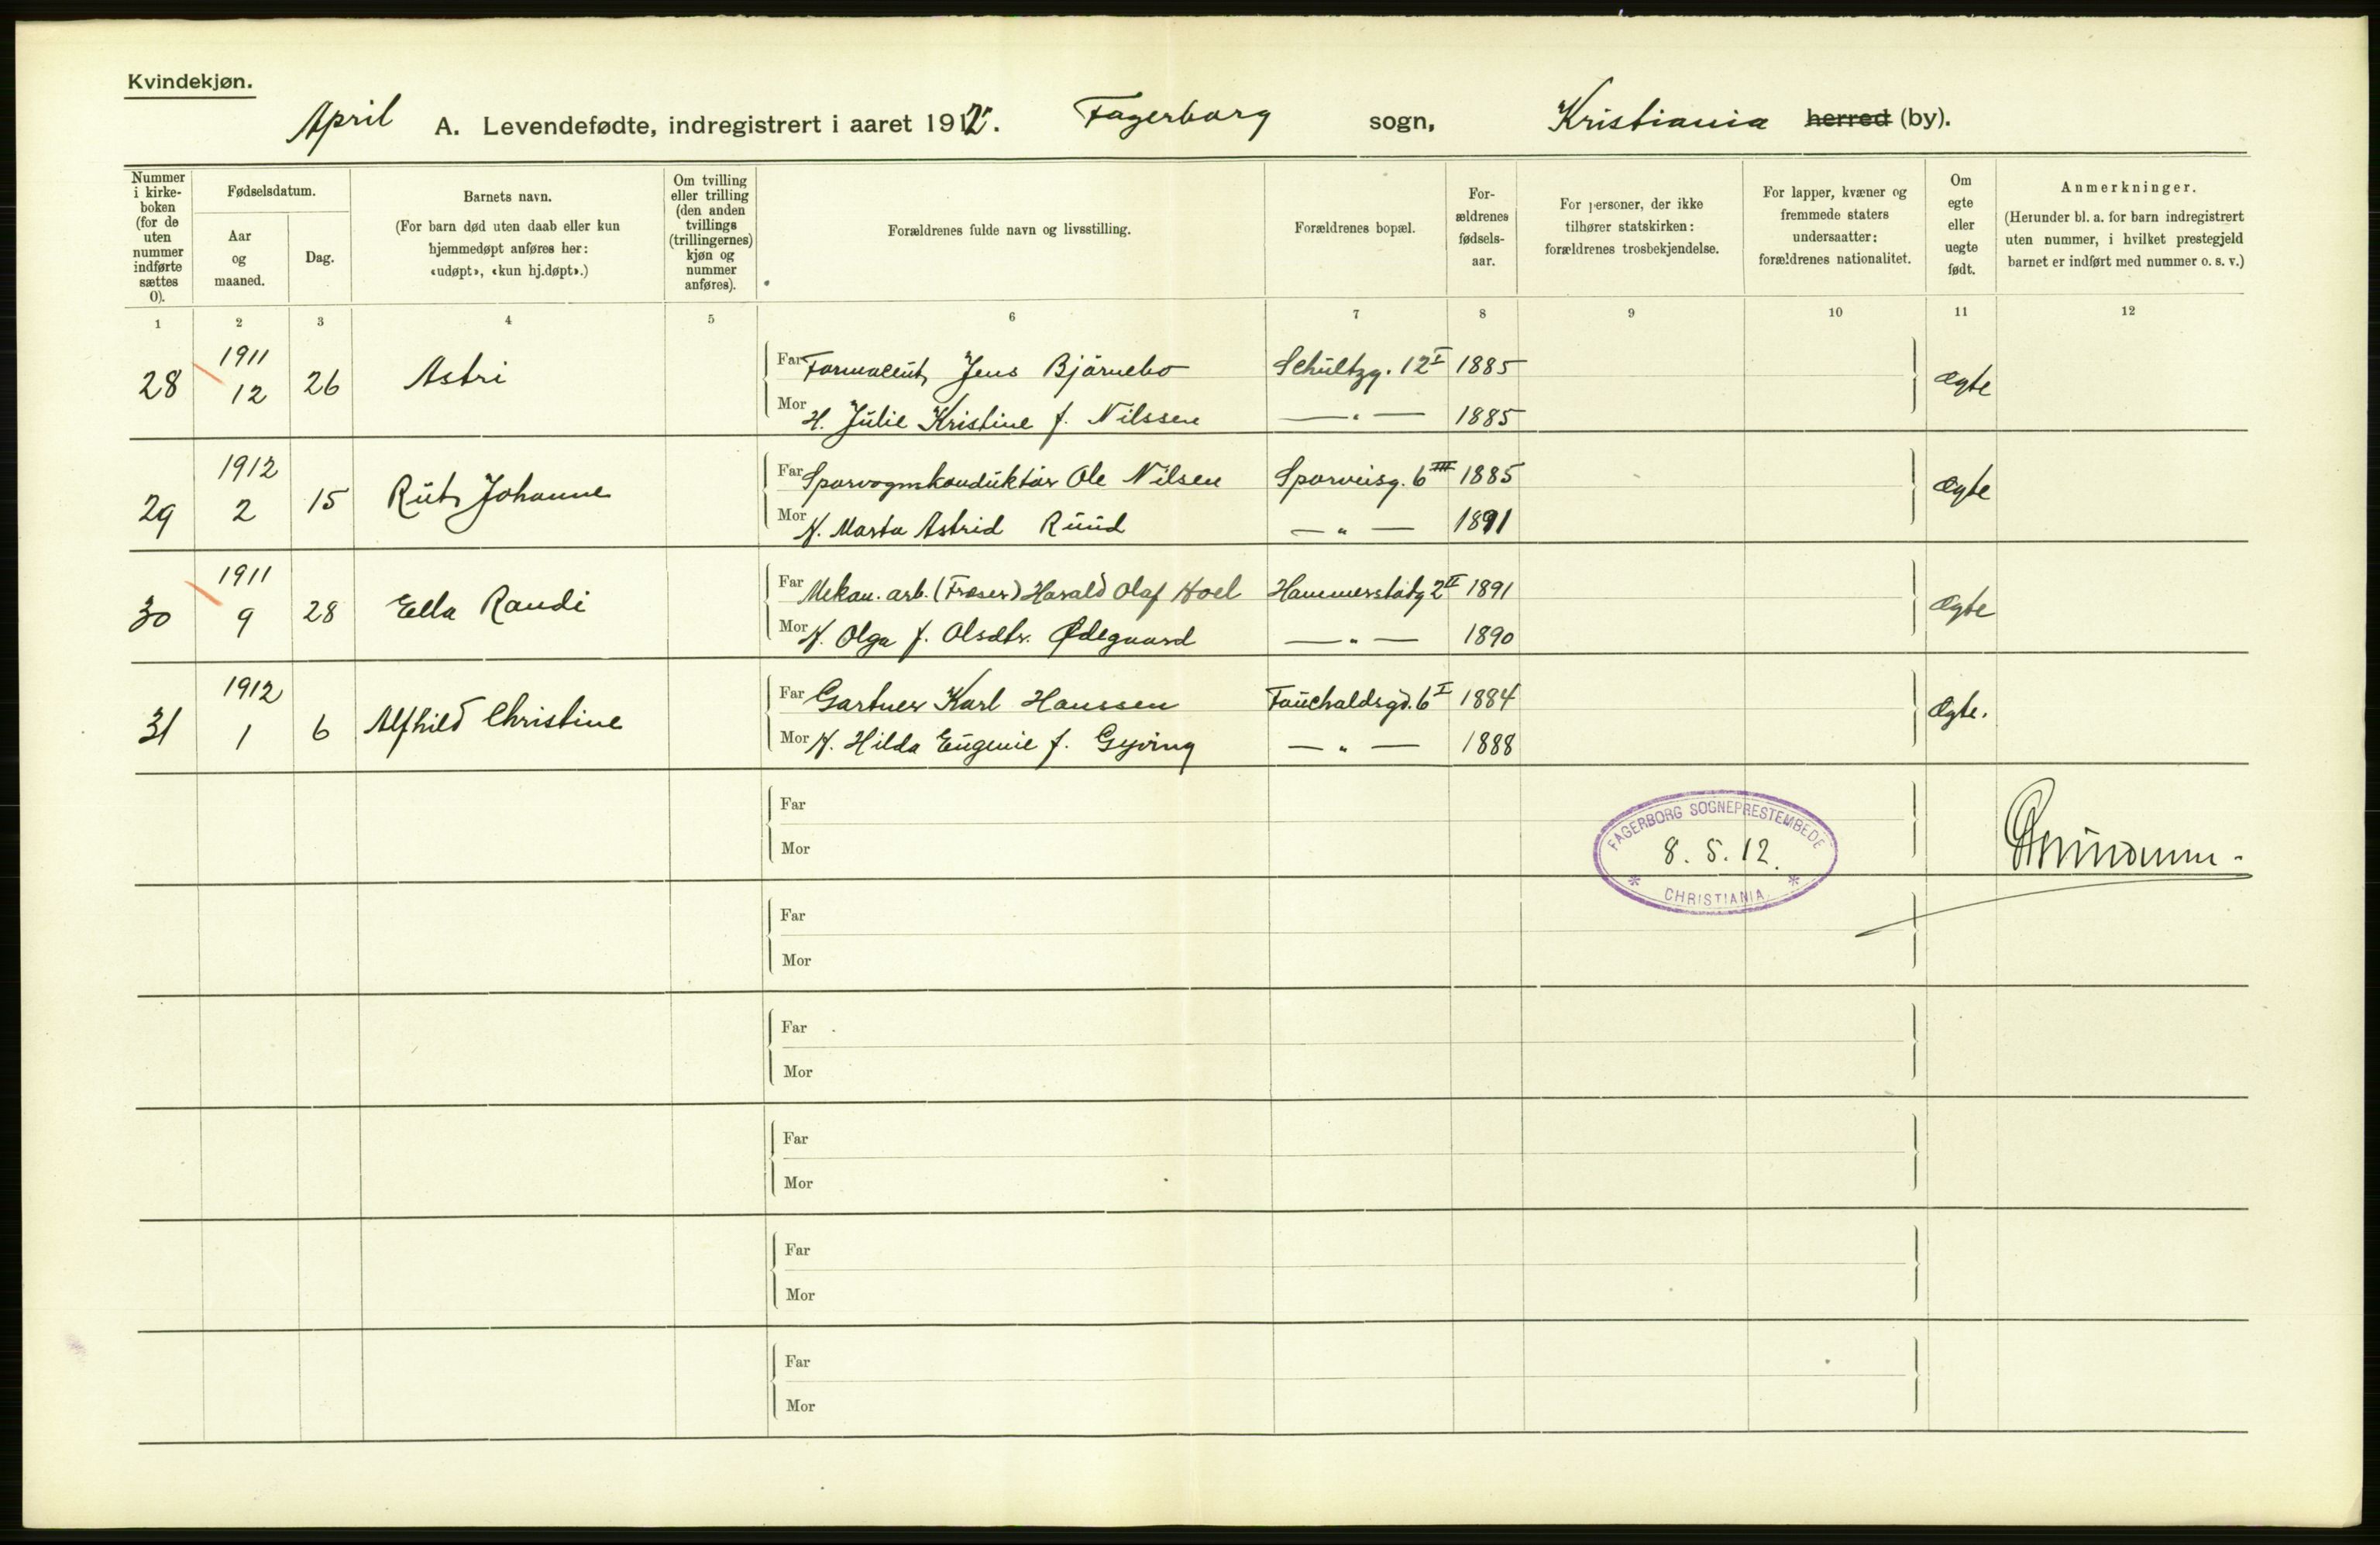 Kvindekjøn.
April A. Levendefødte, indregistrert i aaret 1912. Fagerborg sogn, Kristiania herred (by).
Nummer i kirke-boken (for de uten nummer indførte sættes 0).
Fødselsdatum.
Aar og maaned.
Dag.
Barnets navn.
(For barn død uten daab eller kun hjemmedøpt anføres her: «udøpt», «kun hj.døpt».)
Om tvilling eller trilling (den anden tvillings (trillingernes) kjøn og nummer anføres).
Forældrenes fulde navn og livsstilling.
Forældrenes bopæl.
For-ældrenes fødsels-aar.
For personer, der ikke tilhører statskirken: forældrenes trosbekjendelse.
For lapper, kvæner og fremmede staters undersaatter: forældrenes nationalitet.
Om egte eller uegte født.
Anmerkninger.
(Herunder bl. a. for barn indregistrert uten nummer, i hvilket prestegjeld barnet er indført med nummer o. s. v.)
1 2 3 4 5 6 7 8 9 10 11 12
28 1911 12 26 Astri Far Farmaceut, Jens Bjärnebo Schültzg. 12 I 1885 Ægte
Mor H. Julie Kristine f. Nilssen — " — 1885
29 1912 2 15 Rut Johanne Far Sporvognskonduktör Ole Nilsen Sporveisg. 6 III 1885 Ægte
Mor H. Marta Astrid Ruud — " — 1891
30 1911 9 28 Ella Randi Far Mekan. arb. (Fraser) Harald Olaf Hoel Hammerstadg 2 II 1891 Ægte
Mor H. Olga f. Olsdtr. Ødegaard — " — 1890
31 1912 1 6 Alfhild Christine Far Gartner Karl Hanssen Fauchaldsgd. 6 I 1884 Ægte.
Mor H. Hilda Eugenie f. Gyving — " — 1888
Far
Mor
FAGERBORG SOGNEPRESTEMBEDE
8. 5. 12.
* CHRISTIANIA *
Far
Mor
Far
Mor
Far
Mor
Far
Mor
Far
Mor